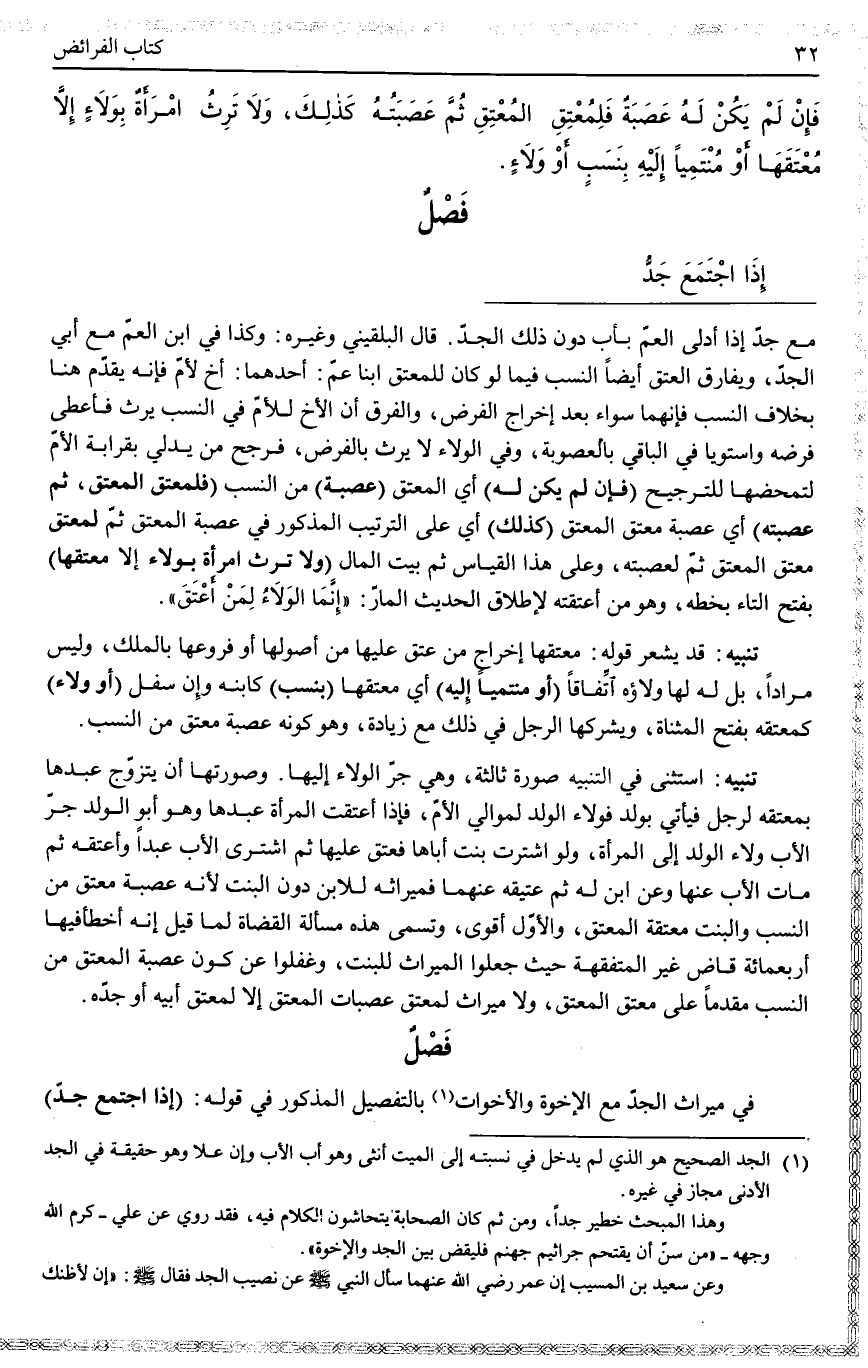 ٣٢ كتاب الفرائض
فَإِنْ لَمْ يَكُنْ لَـهُ عَصَبَةٌ فَلِمُعْتِقِ المُعْتِقِ ثُمَّ عَصَبَتُـهُ كَذٰلِـكَ، وَلَا تَرِثُ امْـرَأَةٌ بِوَلَاءٍ إِلَّا
مُعْتَقَهَـا أَوْ مُنْتَمِياً إِلَيْهِ بِنَسَبٍ أَوْ وَلَاءٍ.
فَصْلٌ
إِذَا اجْتَمَعَ جَدٌّ
مـع جدّ إذا أدلى العمّ بـأب دون ذلك الجـدّ. قال البلقيني وغيـره: وكذا في ابن العمّ مـع أبي
الجدّ، ويفارق العتق أيضاً النسب فيما لو كان للمعتق ابنا عمّ: أحدهما: أخ لأمّ فإنـه يقدّم هنـا
بخلاف النسب فإنهما سواء بعد إخراج الفرض، والفرق أن الأخ لـلأمّ في النسب يرث فـأعطى
فرضه واستويا في الباقي بالعصوبة، وفي الولاء لا يرث بالفرض، فـرجح من يدلي بقرابـة الأمّ
لتمحضهـا للتـرجيح (فـإن لم يكن لـه) أي المعتق (عصبـة) من النسب (فلمعتق المعتق، ثم
عصبته) أي عصبة معتق المعتق (كذلك) أي على الترتيب المذكور في عصبة المعتق ثمّ لمعتق
معتق المعتق ثمّ لعصبته، وعلى هذا القيـاس ثم بيت المال (ولا تـرث امرأة بـولاء إلا معتقها)
بفتح التاء بخطه، وهو من أعتقته لإطلاق الحديث المارّ: «إِنَّمَا الوَلَاءُ لِمَنْ أَعْتَقَ».
تنبيه: قد يشعر قوله: معتقها إخراج من عتق عليها من أصولها أو فروعها بالملك، وليس
مـراداً، بل لـه لها ولاؤه اتِّفـاقاً (أو منتميـاً إليه) أي معتقهـا (بنسب) كابنـه وإن سفـل (أو ولاء)
كمعتقه بفتح المثناة، ويشركها الرجل في ذلك مع زيادة، وهو كونه عصبة معتق من النسب.
تنبيه: استثنى في التنبيه صورة ثالثة، وهي جرّ الولاء إليهـا. وصورتهـا أن يتزوّج عبـدها
بمعتقه لرجل فيأتي بولد فولاء الولد لموالي الأمّ، فإذا أعتقت المرأة عبدها وهـو أبو الـولد جـرّ
الأب ولاء الولد إلى المرأة، ولو اشترت بنت أباها فعتق عليها ثم اشتـرى الأب عبداً وأعتقـه ثم
مـات الأب عنها وعن ابن لـه ثم عتيقه عنهمـا فميراثـه لـلابن دون البنت لأنـه عصبـة معتق من
النسب والبنت معتقة المعتق، والأوّل أقوى، وتسمى هذه مسألة القضاة لمـا قيل إنـه أخطأفيهـا
أربعمائة قـاض غير المتفقهـة حيث جعلوا الميراث للبنت، وغفلوا عن كـون عصبة المعتق من
النسب مقدماً على معتق المعتق، ولا ميراث لمعتق عصبات المعتق إلا لمعتق أبيه أو جدّه.
فَصْلٌ
في ميراث الجدّ مع الإخوة والأخوات(١) بالتفصيل المذكور في قولـه: (إذا اجتمع جـدّ)
(١) الجد الصحيح هو الذي لم يدخل في نسبتـه إلى الميت أنثى وهو أب الأب وإن عـلا وهو حقيقـة في الجد
الأدنى مجاز في غيره.
وهذا المبحث خطير جداً، ومن ثم كان الصحابة يتحاشون الكلام فيه، فقد روي عن علي ـ كرم الله
وجهه ـ «من سنّ أن يقتحم جراثيم جهنم فليقض بين الجد والإخوة».
وعن سعيد بن المسيب إن عمر رضي الله عنهما سأل النبي ﷺ عن نصيب الجد فقال ﷺ: «إن لأظنك